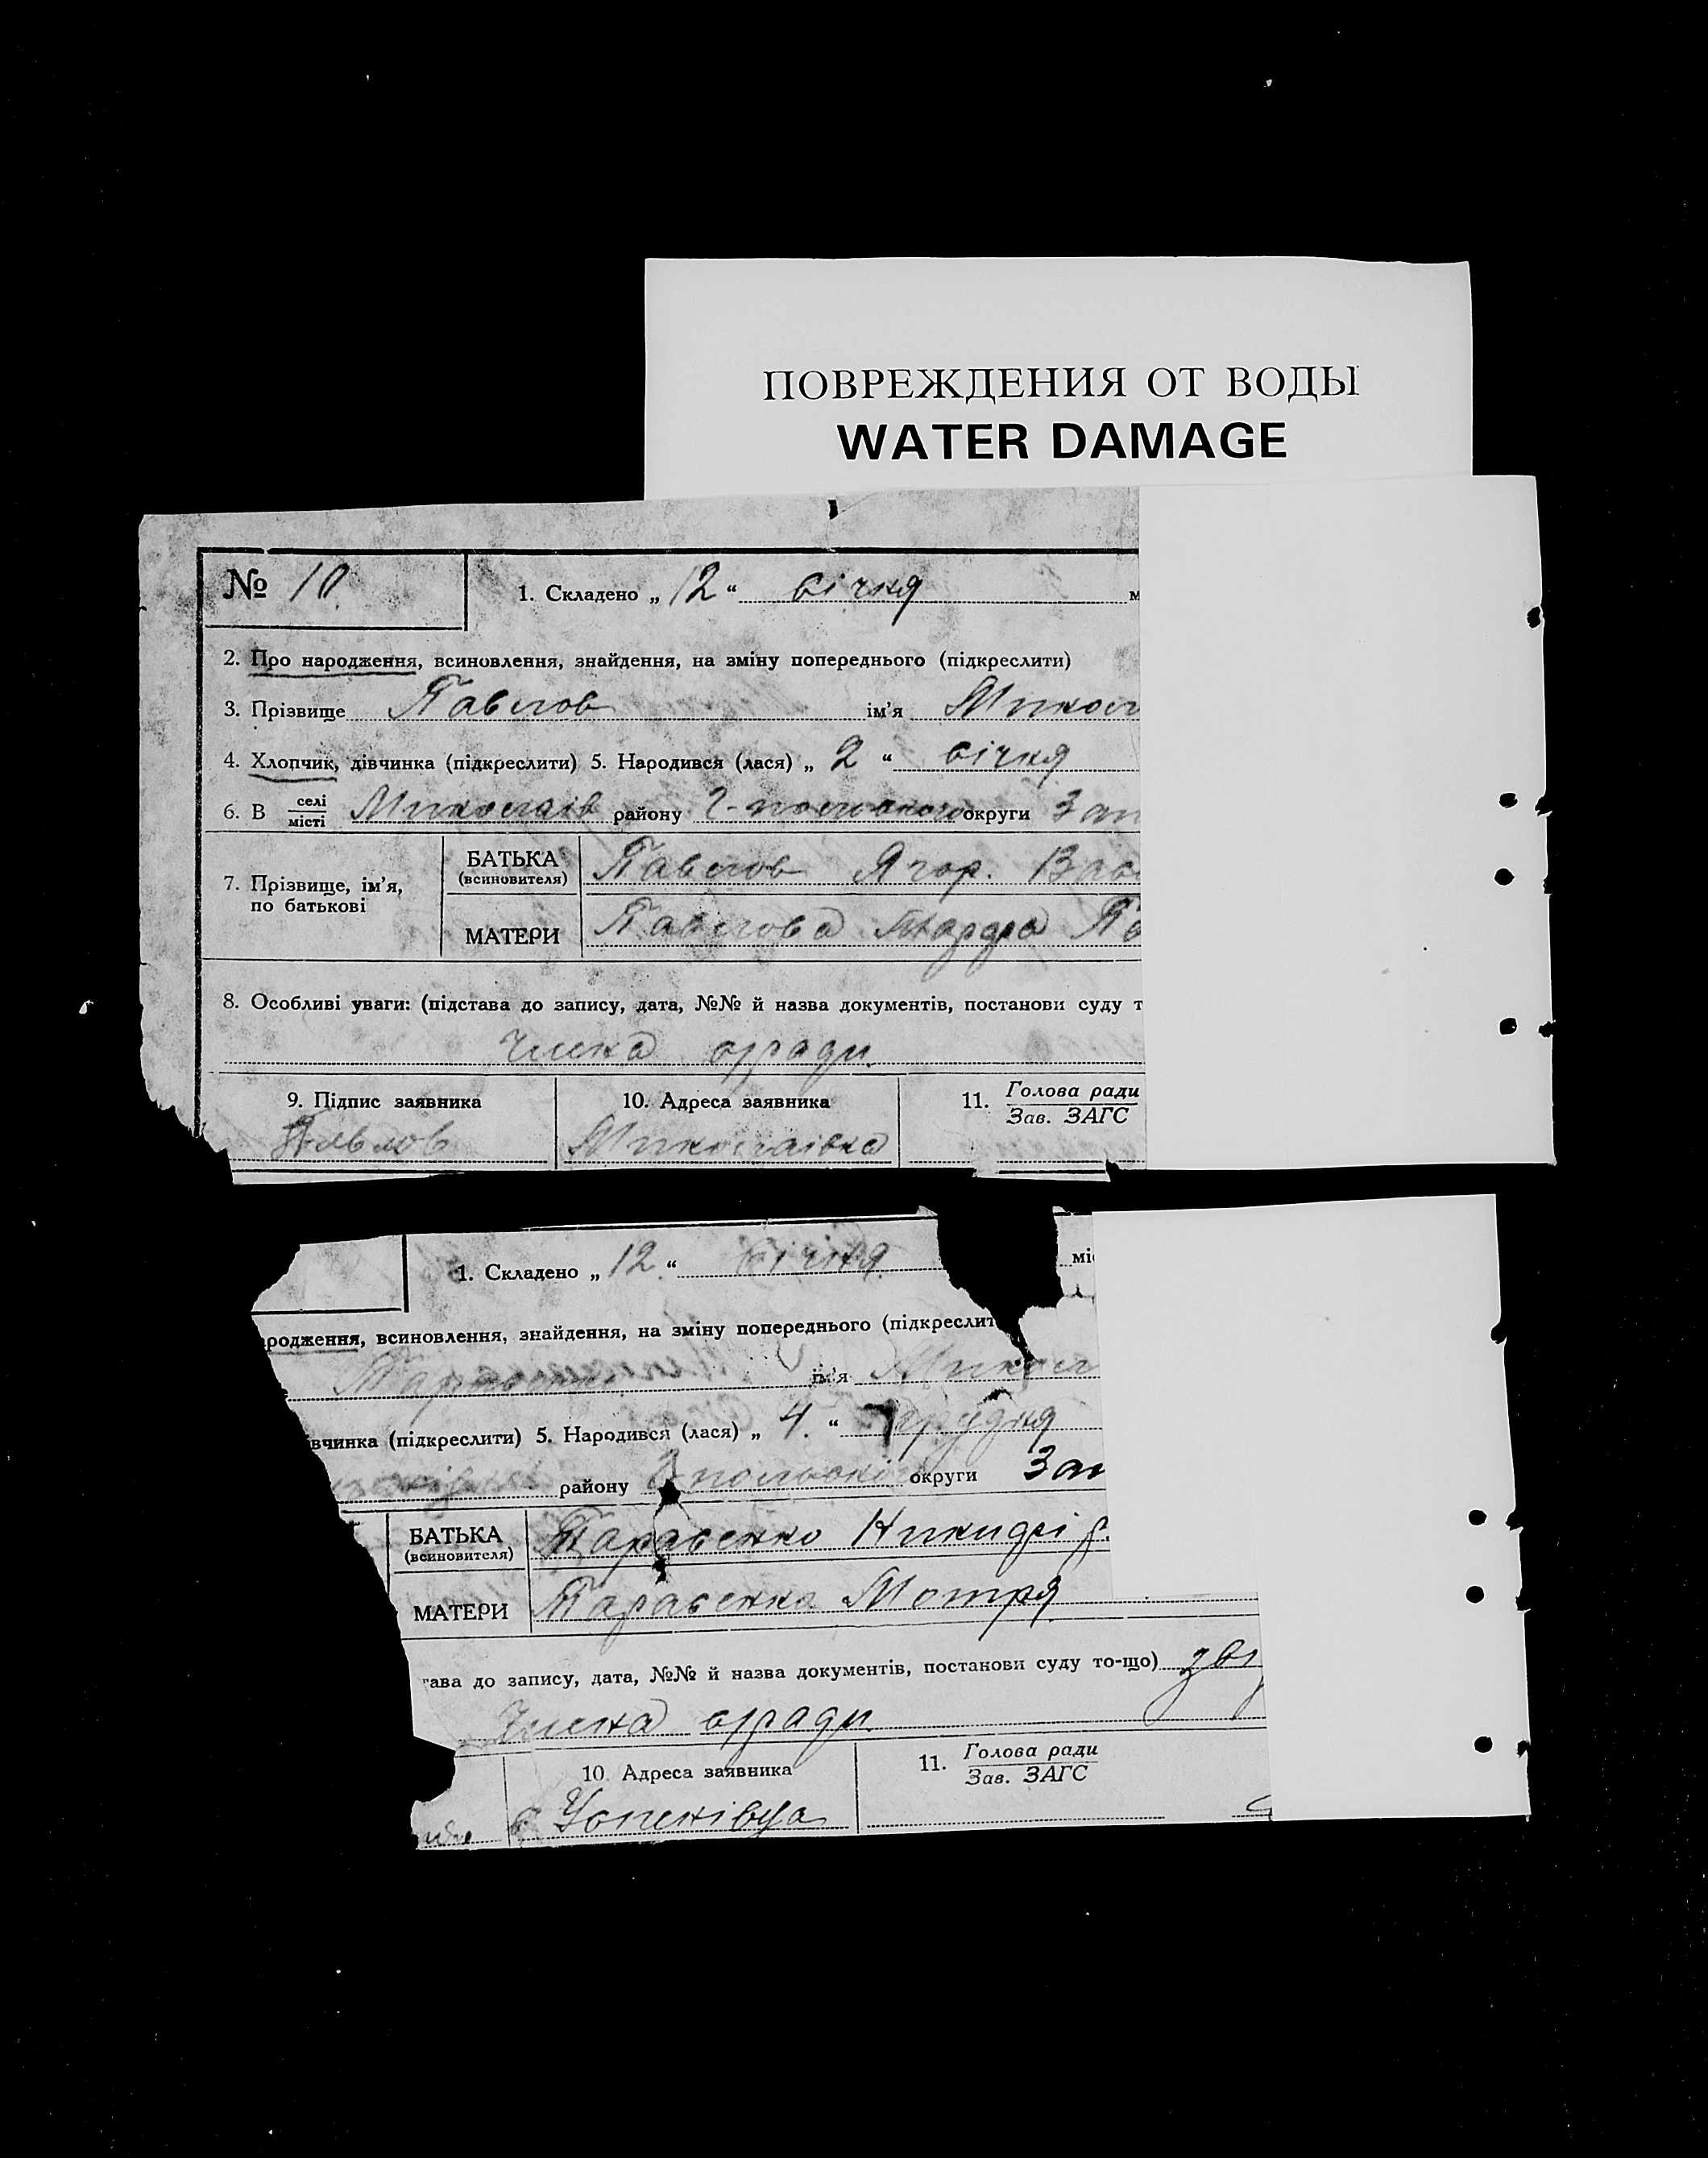 ПОВРЕЖДЕНИЯ ОТ ВОДЫ
WATER DAMAGE
№ 10
1. Складено „ 12 “ січня м
2. Про народження, всиновлення, знайдення, на зміну попереднього (підкреслити)
3. Прізвище Павлов ім'я Микол
4. Хлопчик, дівчинка (підкреслити) 5. Народився (лася) „ 2 “ січня
6. В селі місті Миколаїв району округи Зап
7. Прізвище, ім'я, по батькові
БАТЬКА (всиновителя) Павлов Ягор. Вас
МАТЕРИ Павлова Марфа Па
8. Особливі уваги: (підстава до запису, дата, №№ й назва документів, постанови суду т
Члена с/ради
9. Підпис заявника
10. Адреса заявника
11. Голова ради
Зав. ЗАГС
Павлов Миколаівка
1. Складено „ 12 “ січня мі
родження, всиновлення, знайдення, на зміну попереднього (підкреслит
ім'я Микол
вчинка (підкреслити) 5. Народився (лася) „ 4 “ грудня
району округи Зап
БАТЬКА (всиновителя) Тарасенко Никифір
МАТЕРИ Тарасенко Мотря
ава до запису, дата, №№ й назва документів, постанови суду то-що)
Члена с/ради
10. Адреса заявника
11. Голова ради
Зав. ЗАГС
Успенівца